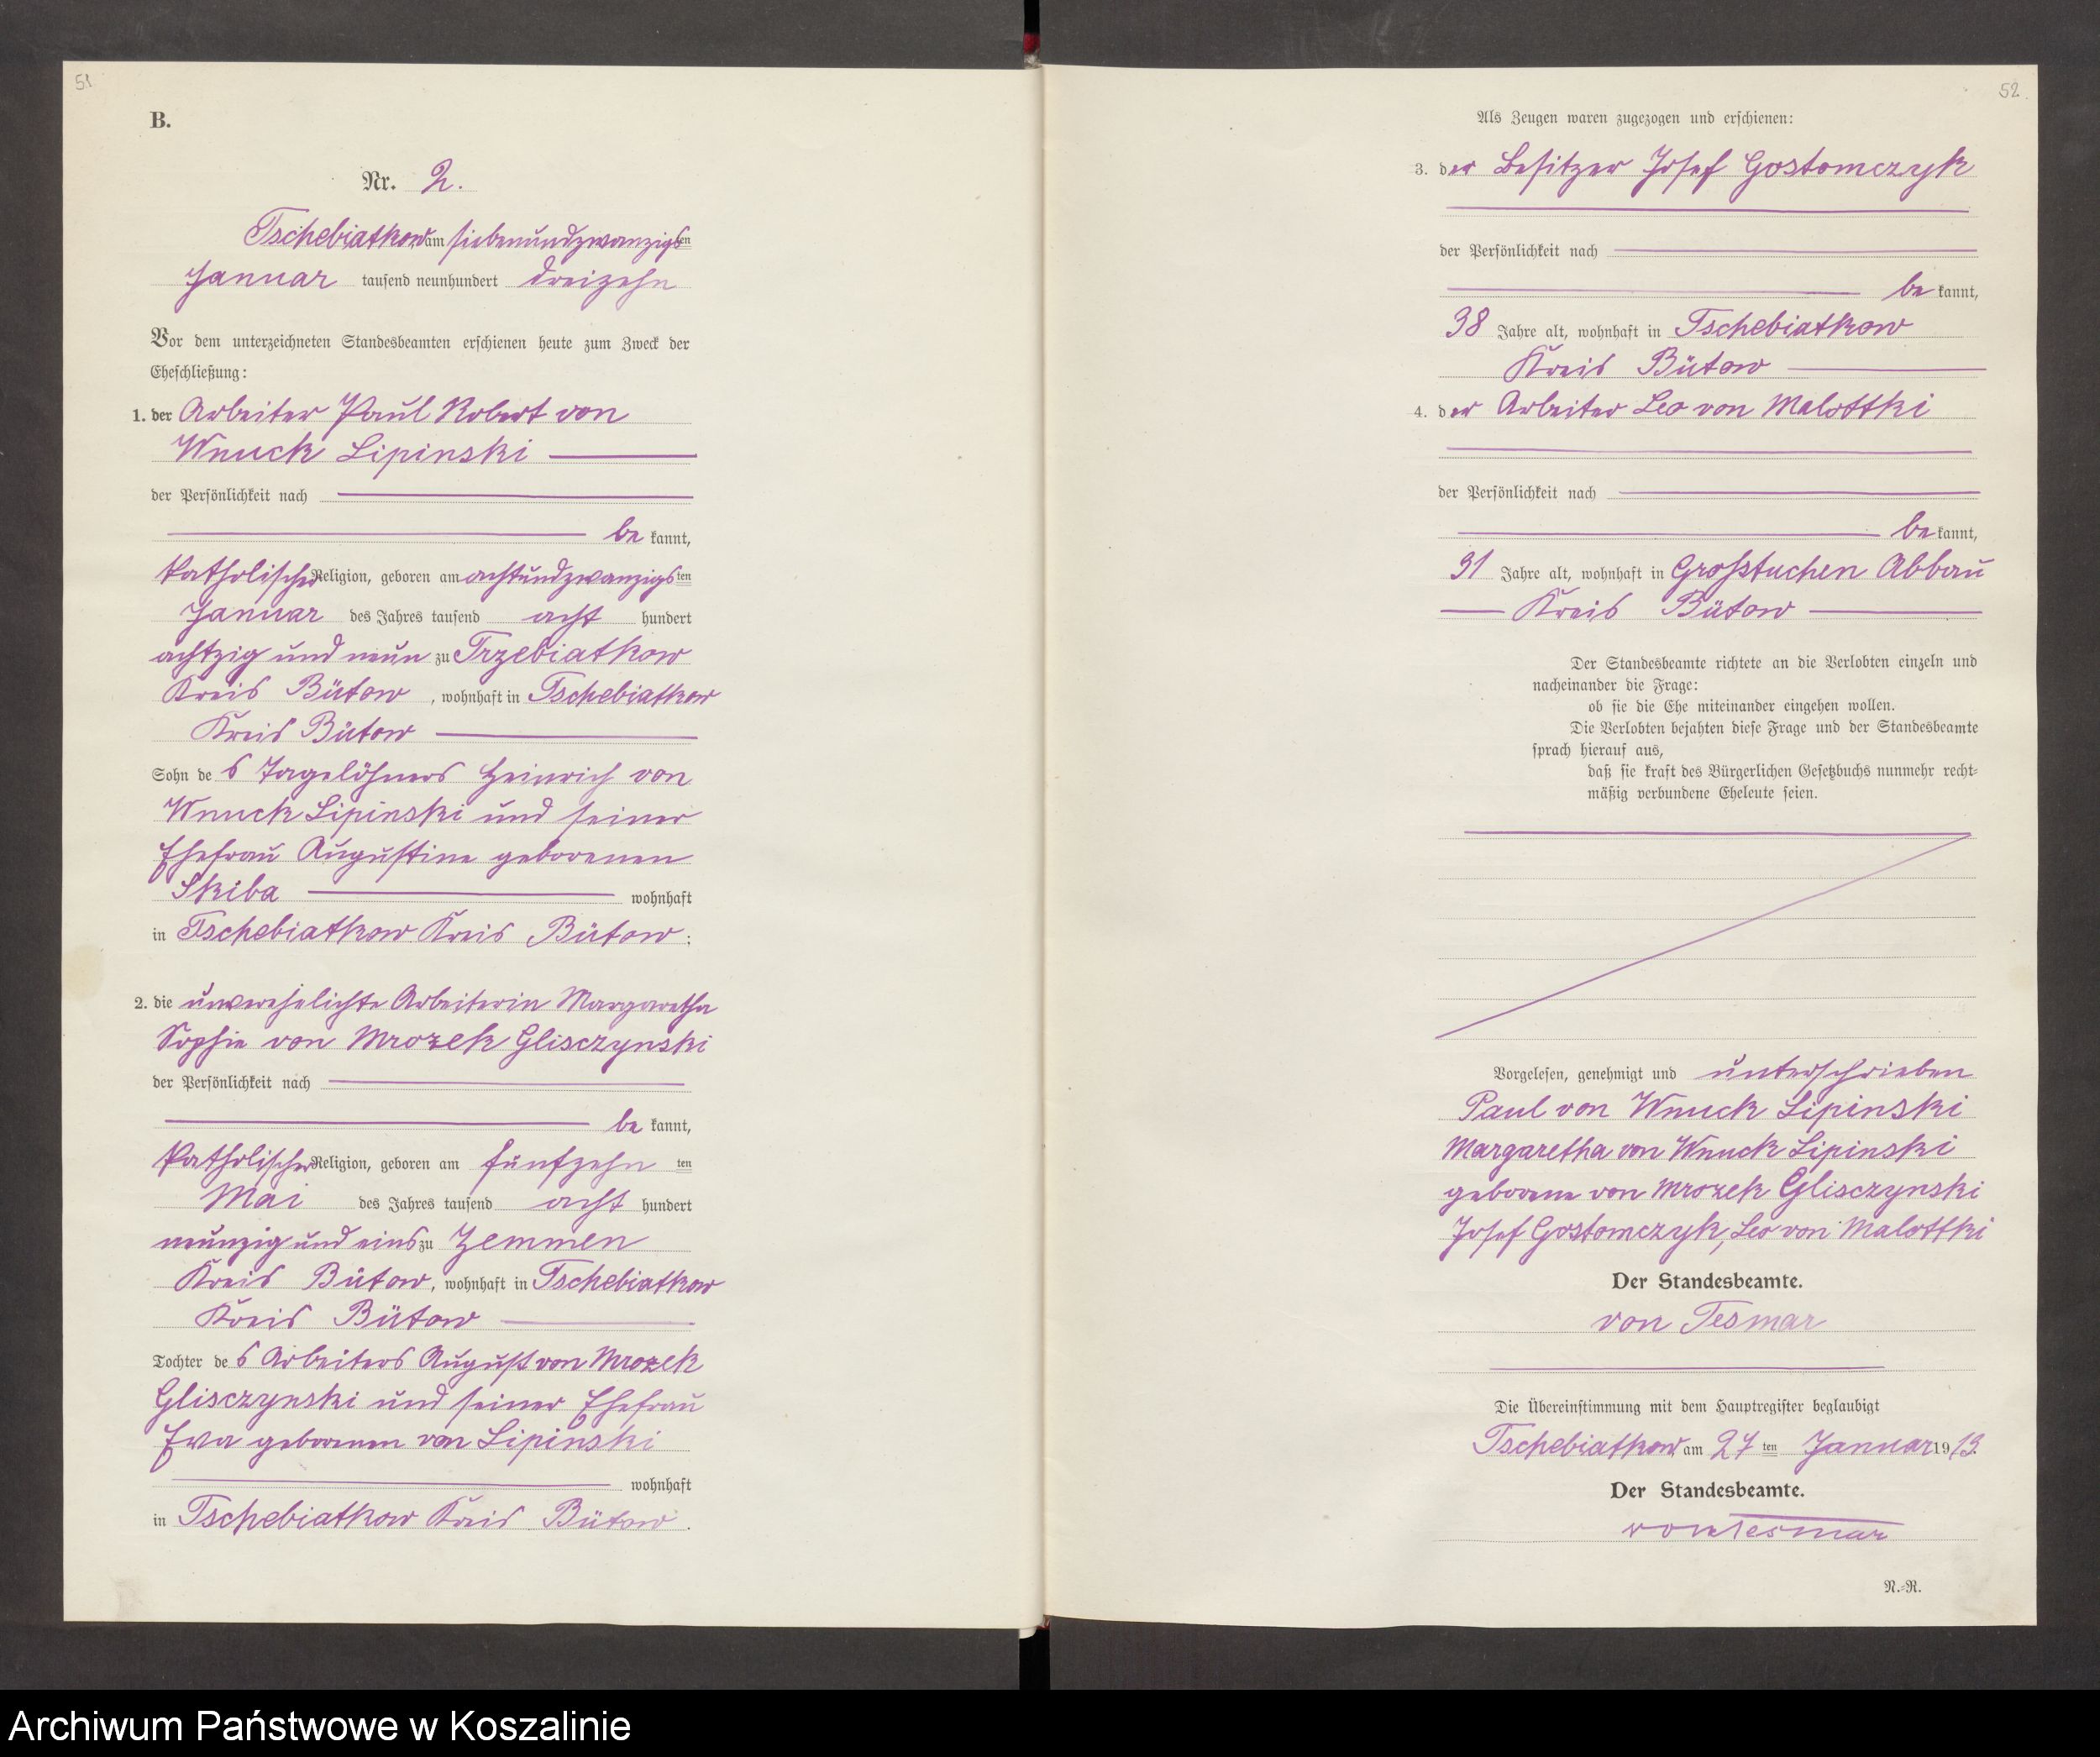 51
B.
Nr. 2.
Tschebiatkow am siebenundzwanzigsten
Januar tausend neunhundert dreizehn
Vor dem unterzeichneten Standesbeamten erschienen heute zum Zweck der
Eheschließung:
1. der Arbeiter Paul Robert von
Wnuck Lipinski
der Persönlichkeit nach
be kannt,
katholischer Religion, geboren am achtundzwanzigsten
Januar des Jahres tausend acht hundert
achtzig und neun zu Trzebiatkow
Kreis Bütow, wohnhaft in Tschebiatkow
Kreis Bütow
Sohn des Tagelöhners Heinrich von
Wnuck Lipinski und seiner
Ehefrau Augustine geborenen
Skiba wohnhaft
in Tschebiatkow Kreis Bütow;
2. die unverehelichte Arbeiterin Margaretha
Sophie von Mrozek Glisczynski
der Persönlichkeit nach
be kannt,
katholischer Religion, geboren am fünfzehn ten
Mai des Jahres tausend acht hundert
neunzig und eins zu Zemmen
Kreis Bütow, wohnhaft in Tschebiatkow
Kreis Bütow
Tochter des Arbeiters August von Mrozek
Glisczynski und seiner Ehefrau
Eva geborenen von Lipinski
wohnhaft
in Tschebiatkow Kreis Bütow.
52
Als Zeugen waren zugezogen und erschienen:
3. der Besitzer Josef Gostomczyk
der Persönlichkeit nach
be kannt,
38 Jahre alt, wohnhaft in Tschebiatkow
Kreis Bütow
4. der Arbeiter Leo von Malottki
der Persönlichkeit nach
be kannt,
31 Jahre alt, wohnhaft in Großtuchen Abbau
Kreis Bütow
Der Standesbeamte richtete an die Verlobten einzeln und
nacheinander die Frage:
ob sie die Ehe miteinander eingehen wollen.
Die Verlobten bejahten diese Frage und der Standesbeamte
sprach hierauf aus,
daß sie kraft des Bürgerlichen Gesetzbuchs nunmehr recht-
mäßig verbundene Eheleute seien.
Vorgelesen, genehmigt und unterschrieben
Paul von Wnuck Lipinski
Margaretha von Wnuck Lipinski
geborene von Mrozek Glisczynski
Josef Gostomczyk, Leo von Malottki
Der Standesbeamte.
von Tesmar
Die Übereinstimmung mit dem Hauptregister beglaubigt
Tschebiatkow am 27 ten Januar 1913.
Der Standesbeamte.
von Tesmar
N.-R.
Archiwum Państwowe w Koszalinie